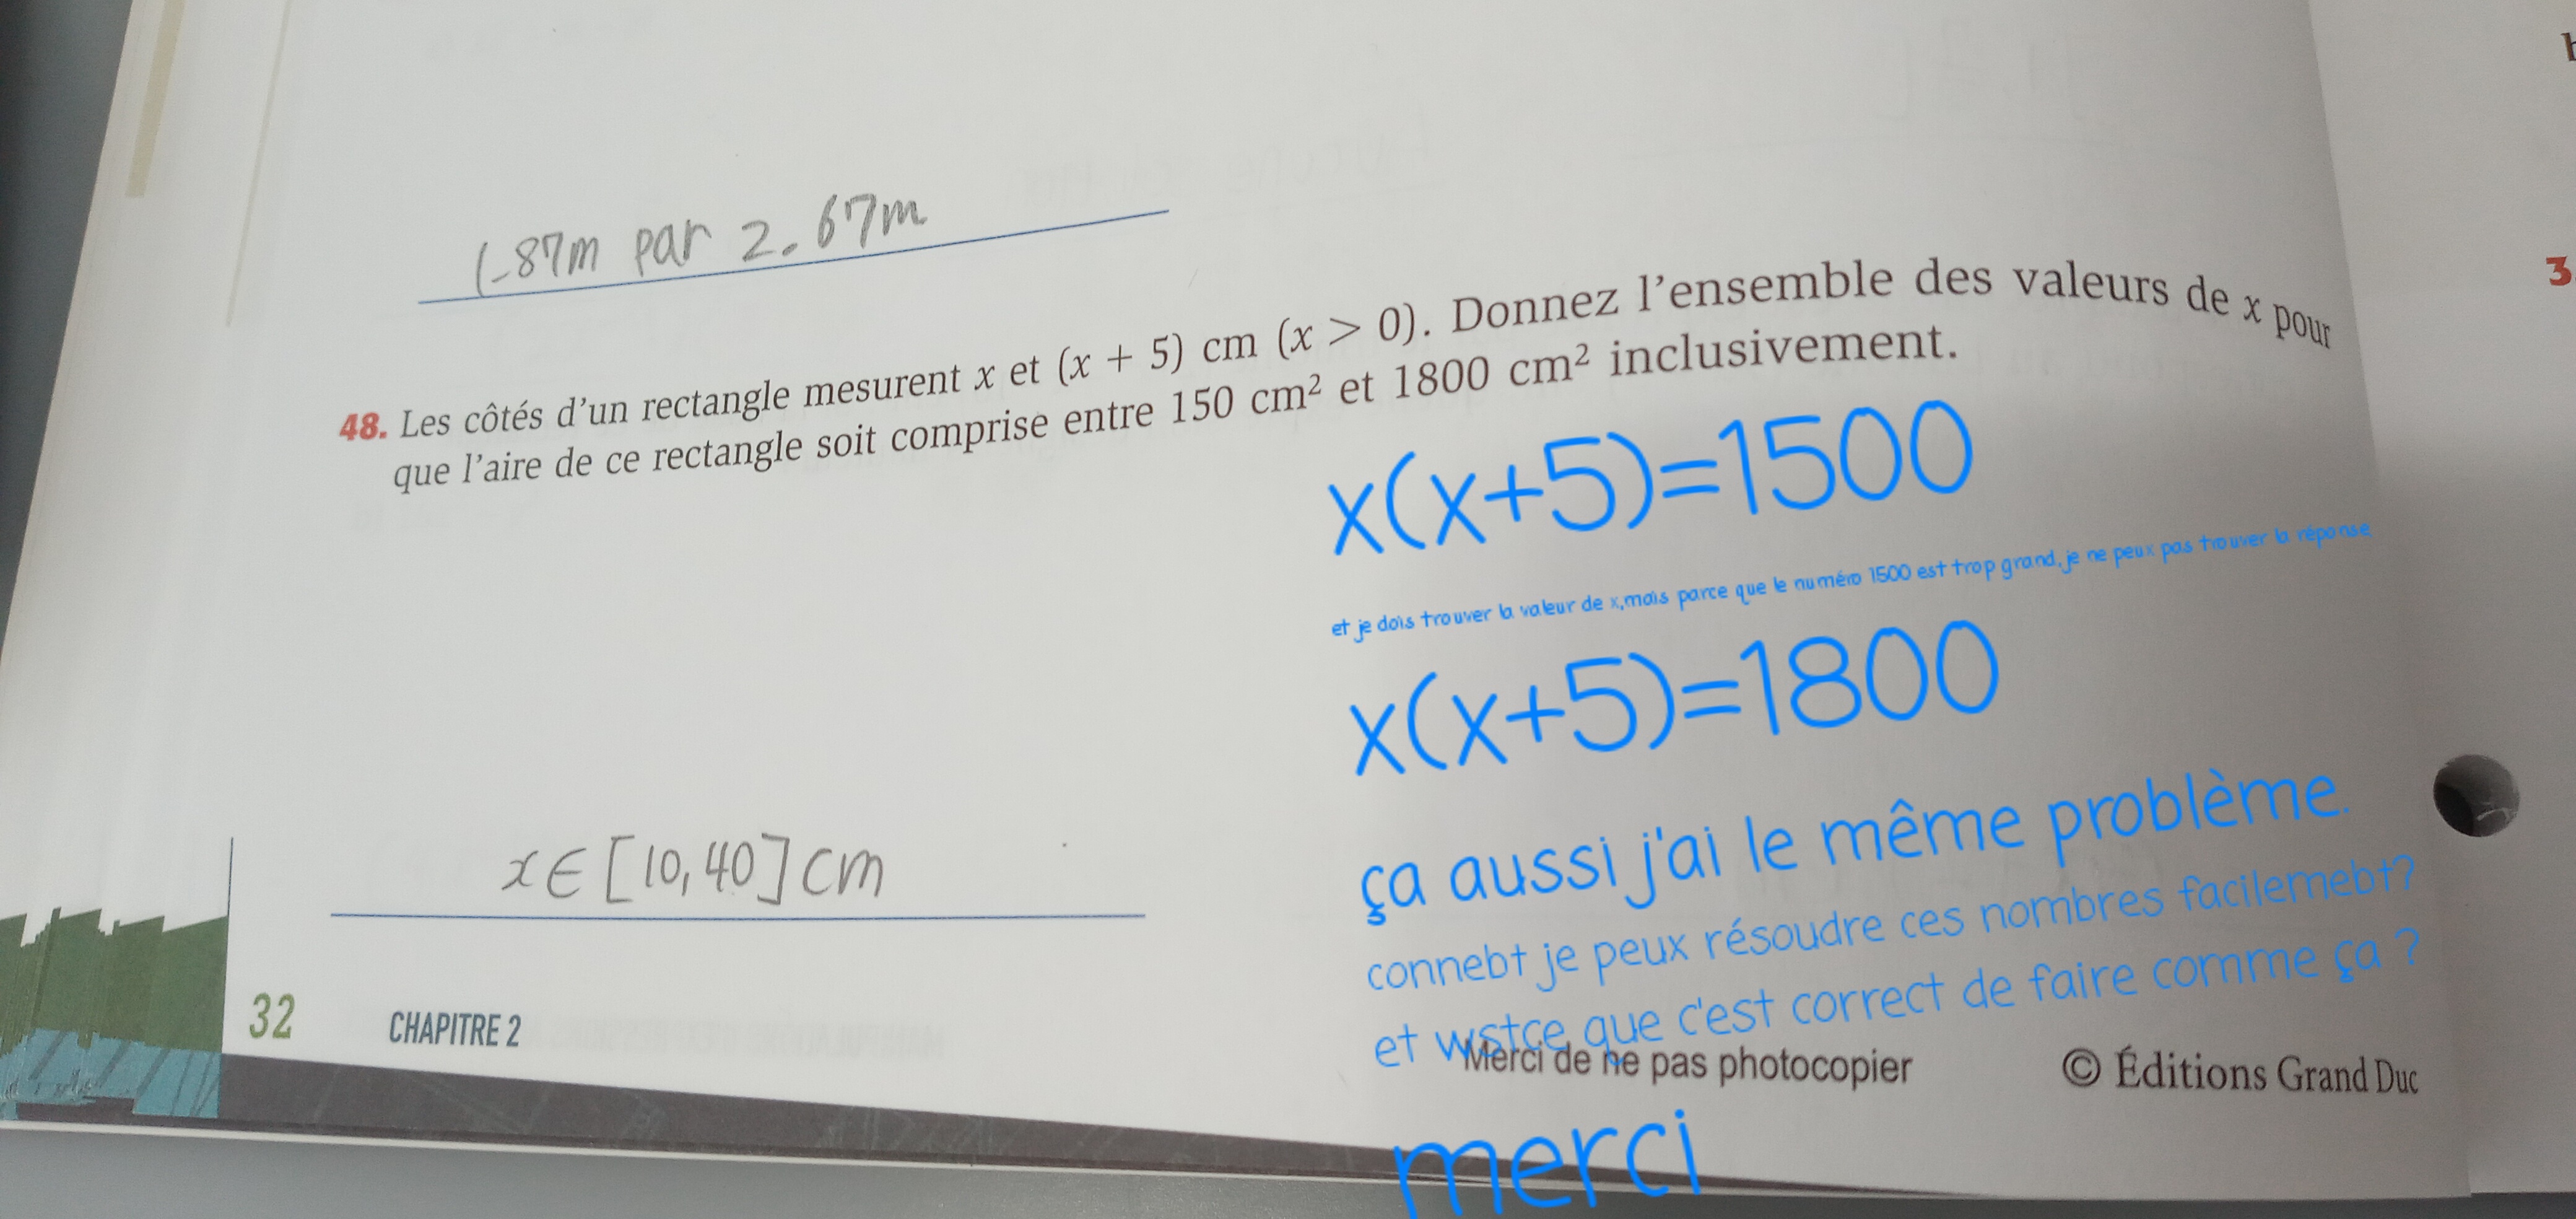 1.87m par 2.67m
48. Les côtés d'un rectangle mesurent x et (x + 5) cm (x > 0). Donnez l'ensemble des valeurs de x pour
que l'aire de ce rectangle soit comprise entre 150 cm² et 1800 cm² inclusivement.
x(x+5)=1500
et je dois trouver la valeur de x,mais parce que le numéro 1500 est trop grand,je ne peux pas trouver la réponse
x(x+5)=1800
ça aussi j'ai le même problème.
connebt je peux résoudre ces nombres facilemebt?
et wstce que c'est correct de faire comme ça ?
merci
x∈[10,40]cm
32 CHAPITRE 2
Merci de ne pas photocopier
© Éditions Grand Duc
3